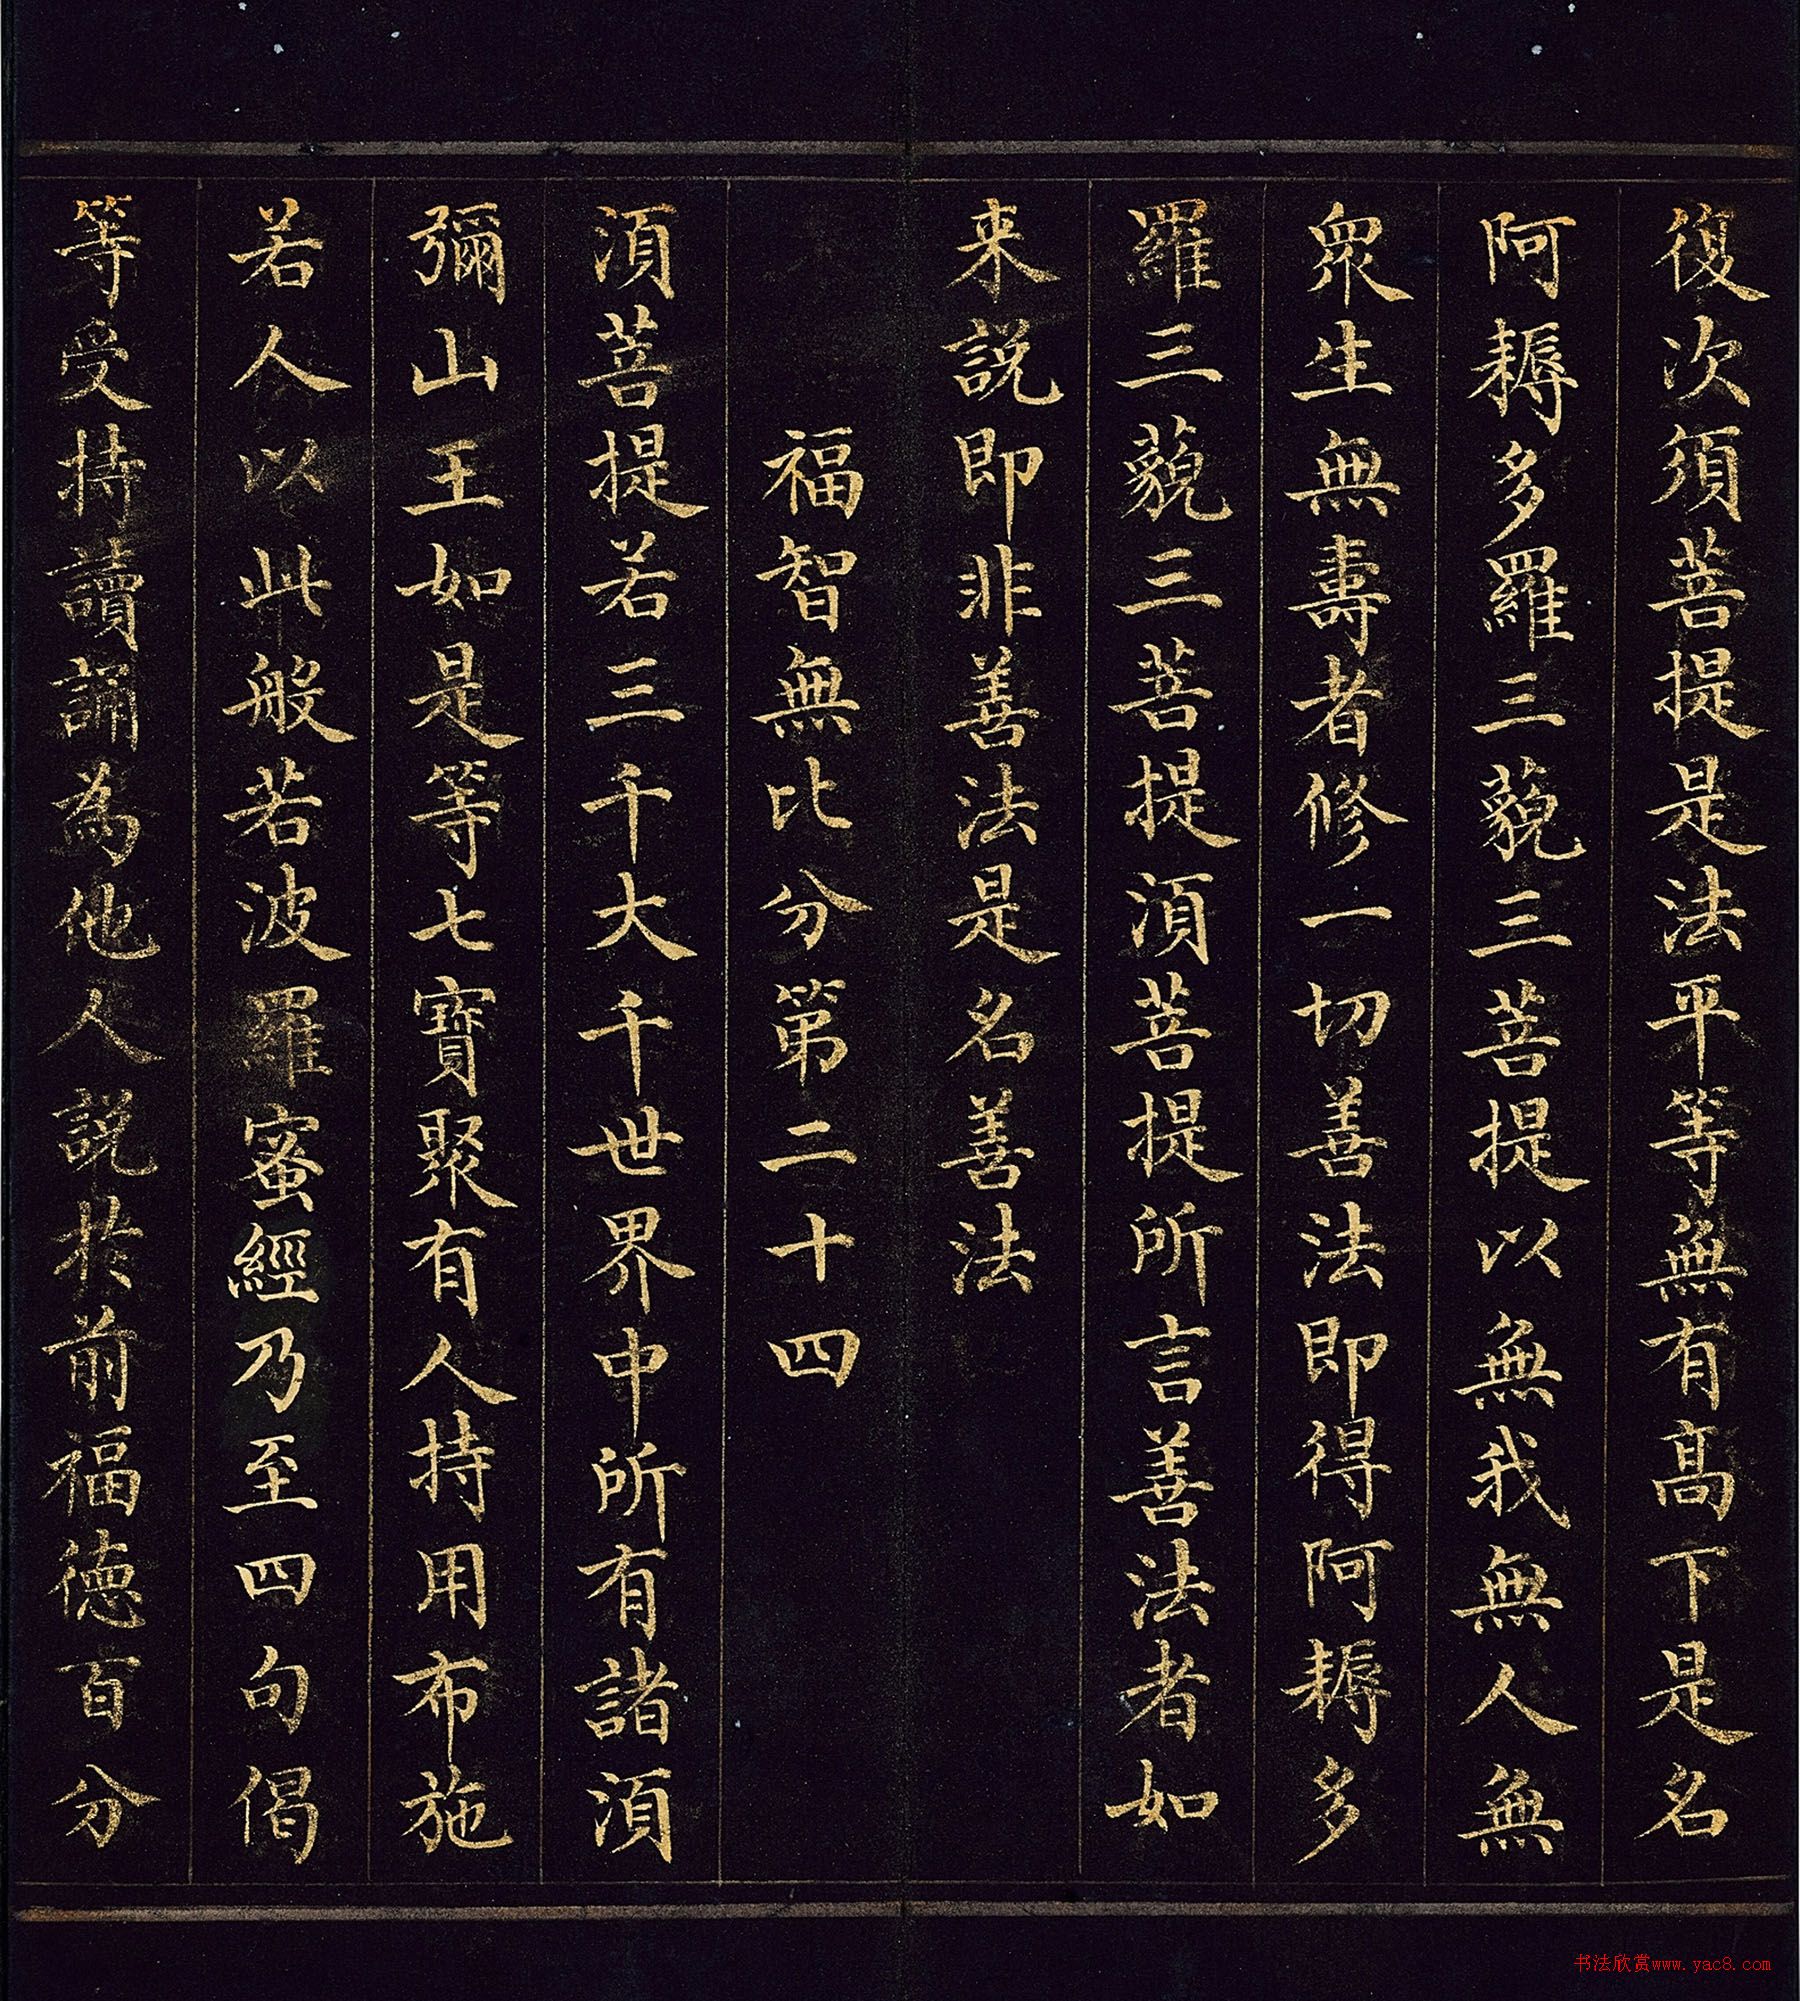 復次須菩提是法平等無有髙下是名
阿耨多羅三藐三菩提以無我無人無
衆生無壽者修一切善法即得阿耨多
羅三藐三菩提湏菩提所言善法者如
来説即非善法是名善法
福智無比分第二十四
湏菩提若三千大千世界中所有諸湏
彌山王如是等七寶聚有人持用布施
若人以此般若波羅蜜經乃至四句偈
等受持讀誦為他人説於前福德百分
书法欣赏www.yac8.com